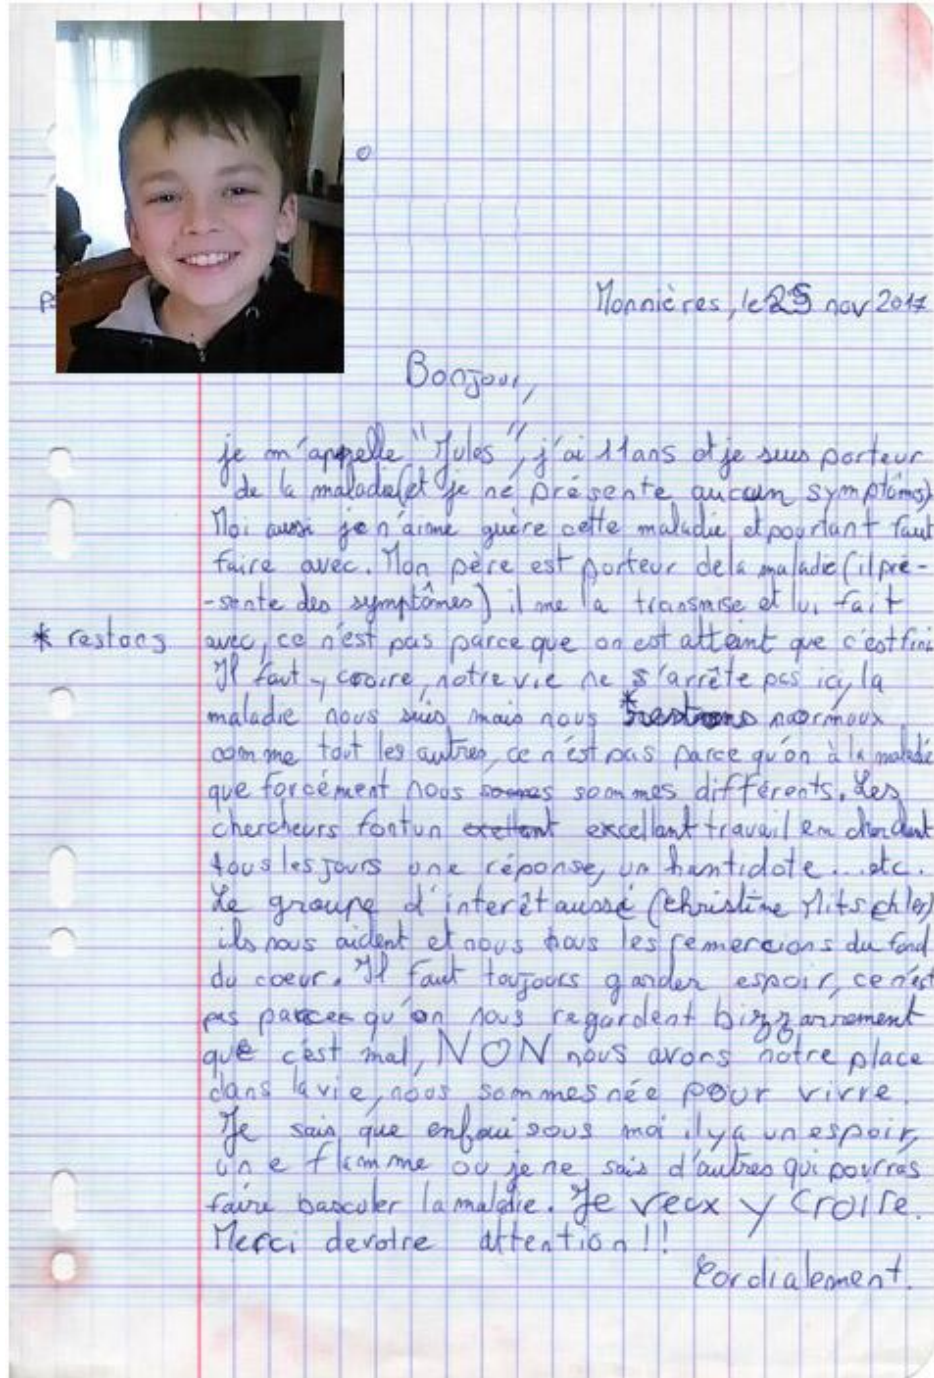 Monnières, le 25 nov 2017
Bonjour,
je m'appelle "Jules", j'ai 11 ans et je suis porteur
de la maladie (et je ne présente aucun symptôms).
Moi aussi je n'aime guère cette maladie et pourtant faut
faire avec. Mon père est porteur de la maladie (il pré-
-sente des symptômes) il me la transmise et lui fait
avec, ce n'est pas parce que on est atteint que c'est fini
Il faut y croire, notre vie ne s'arrête pas ici, la
maladie nous suis mais nous * normaux
* restons
comme tout les autres, ce n'est pas parce qu'on à la maladie
que forcément nous sommes différents. Les
chercheurs font un excellant travail en cherchant
tous les jours une réponse, un hantidote...etc.
Le groupe d'interêt aussi (Christine Mitschler)
ils nous aident et nous vous les remercions du fond
du coeur. Il faut toujours garder espoir, ce n'est
pas parce qu'on nous regardent bizzarrement
que c'est mal, NON nous avons notre place
dans la vie, nous sommes née pour vivre.
Je sais que enfoui sous moi il y a un espoir,
une flamme ou je ne sais d'autres qui pourras
faire basculer la maladie. Je veux y croire.
Merci de votre attention!!
Cordialement.